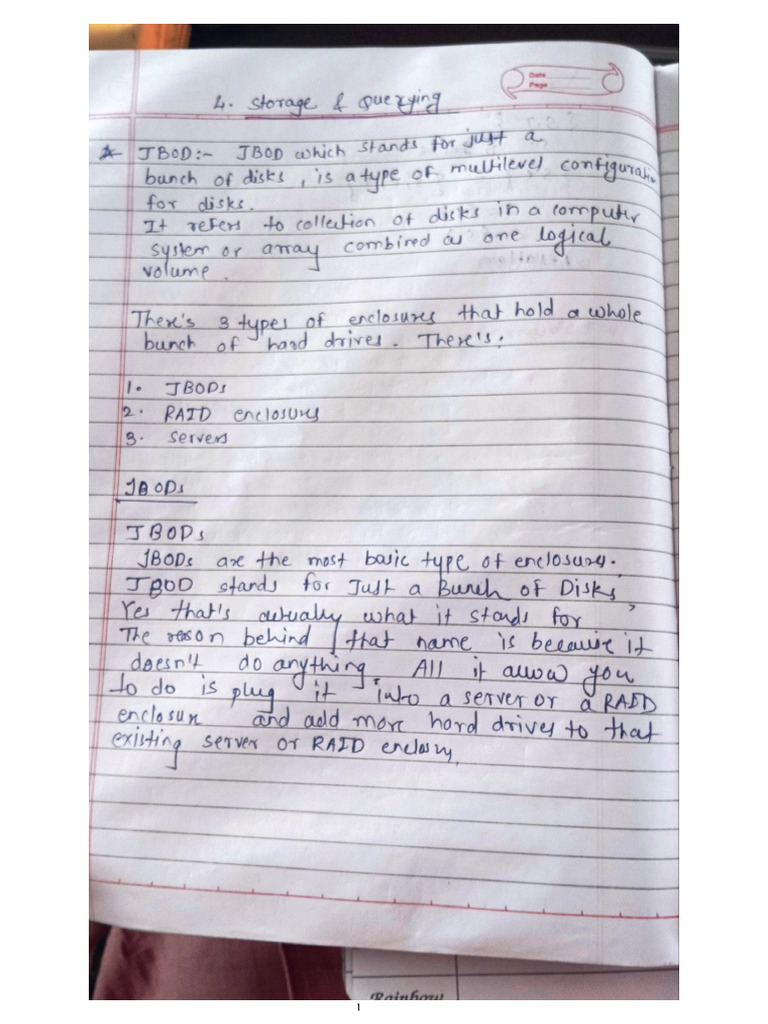 Date
Page
4. Storage & Querying
* JBOD:- JBOD which stands for just a
bunch of disks, is a type of multilevel configuration
for disks.
It refers to collection of disks in a computer
system or array combined as one logical
volume.
There's 3 types of enclosures that hold a whole
bunch of hard drives. There's:
1. JBODs
2. RAID enclosures
3. Servers
JBODs
JBODs
JBODs are the most basic type of enclosures.
JBOD stands for Just a Bunch of Disks,
Yes that's actually what it stands for
The reason behind that name is because it
doesn't do anything. All it allow you
to do is plug it into a server or a RAID
enclosure and add more hard drives to that
existing server or RAID enclosure.
Rainbow
1